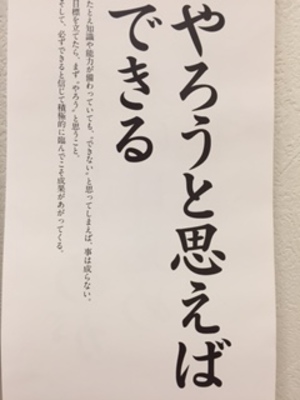 やろうと思えば
できる
たとえ知識や能力が備わっていても、“できない”と思ってしまえば、事は成らない。
目標を立てたら、まず“やろう”と思うこと。
そして、必ずできると信じて積極的に臨んでこそ成果があがってくる。